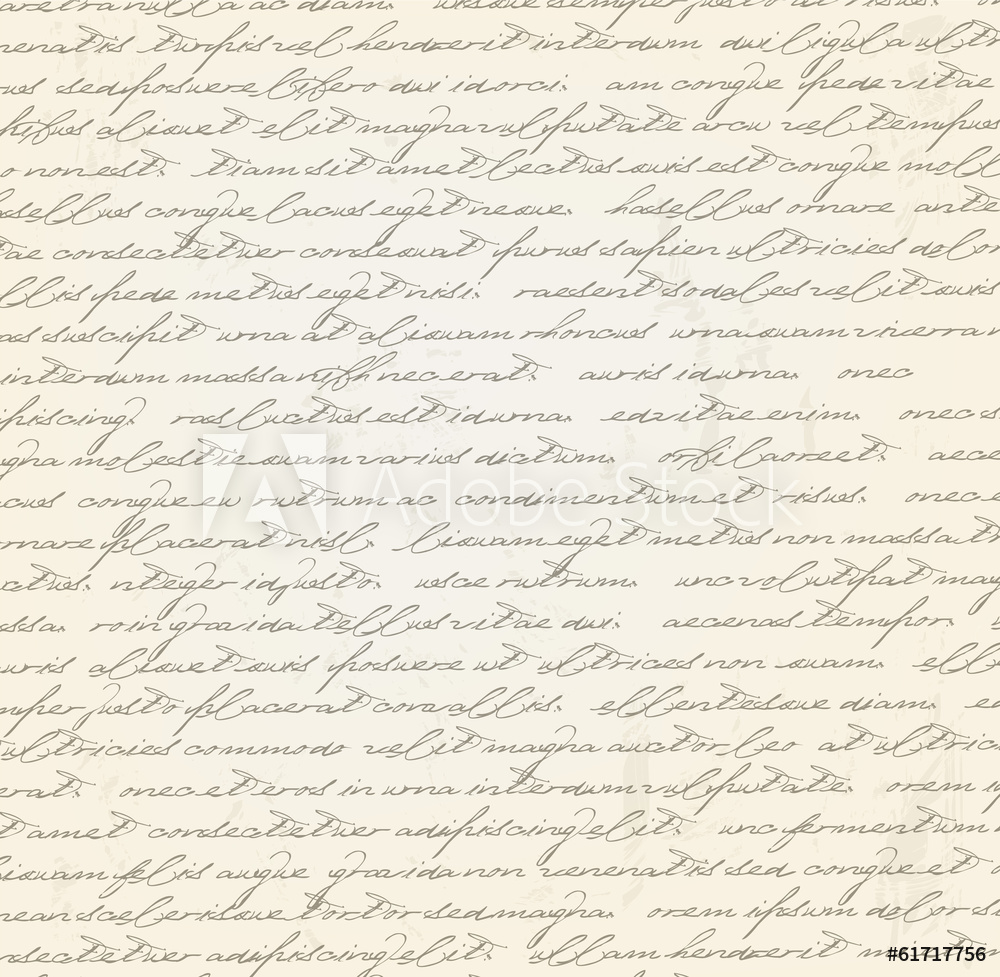 haretra nulla ac diam. usque semper justo at risus.
nenatis turpis vel hendrerit interdum dui ligula ultri
rus sed posuere libero dui id orci. am congue pede vitae
hifus aliquet elit magna vulputate arcu vel tempus
o non est. tiam sit amet lectus quis est congue moll
asellus congue lacus eget neque. hasellus ornare ante
tae consectetuer consequat purus sapien ultricies dolor
llis pede metus eget nisi. raesent sodales velit quis
as suscipit urna at aliquam rhoncus urna quam viverra n
interdum massa nibh nec erat. auris id urna. onec
ipiscing. ras luctus est id urna. ed vitae enim. onec s
agna molestie quam varius dictum. orbi laoreet. aece
Adobe Stock
acus congue eu rutrum ac condimentum et risus. onec e
rnare placerat nisl. liquam eget metus non massa tr
ctus. nteger id justo. usce rutrum. unc volutpat mag
ssa. roin gravida tellus vitae dui. aecenas tempor.
uris aliquet quis posuere ut ultrices non quam. elle
mper justo placerat convallis. ellentesque diam. e
ultricies commodo velit magna auctor leo at ultric
erat. onec et eros in urna interdum vulputate. orem ip
t amet consectetuer adipiscing elit. unc fermentum
liquam felis augue gravida non venenatis sed congue et
nean scelerisque tortor sed magna. orem ipsum dolor si
nsectetuer adipiscing elit. ullam hendrerit
#61717756